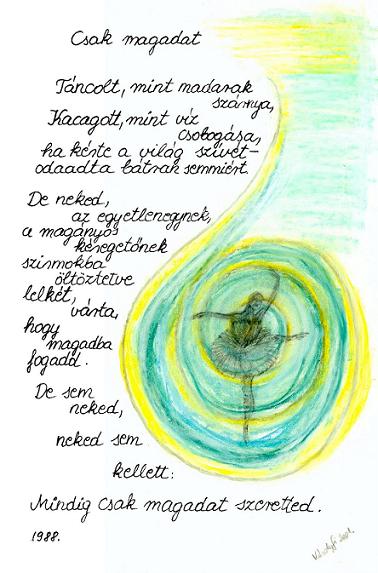 Csak magadat
Táncolt, mint madarak
szárnya,
Kacagott, mint víz
csobogása,
ha kérte a világ szívét-
odaadta bátran semmiért.
De neked,
az egyetlenegynek,
a magányos
kéregetőnek
szirmokba
öltöztetve
lelkét,
várta,
hogy
magadba
fogadd.
De sem
neked,
neked sem
kellett:
Mindig csak magadat szeretted.
1988.